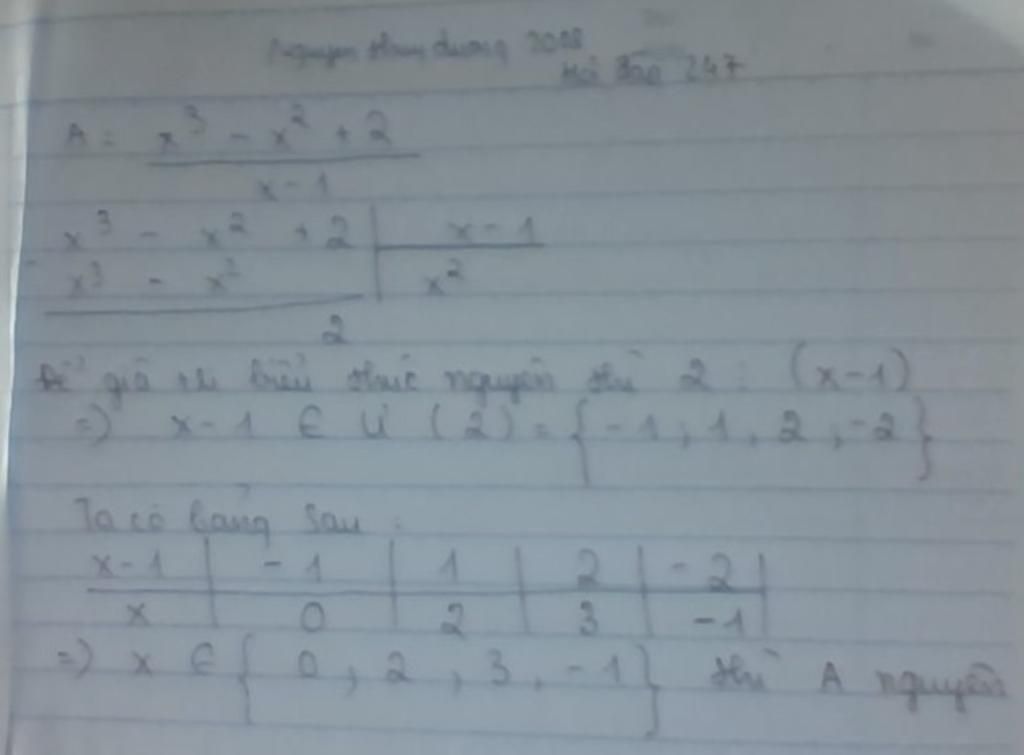 Nguyen thuy duong 2008
Hỏi Đáp 247
A = x³ - x² + 2
x - 1
x³ - x² + 2 | x - 1
- x³ - x² | x²
2
Để giá trị biểu thức nguyên thì 2 : (x-1)
=) x - 1 ∈ Ư (2) = { -1 , 1 , 2 , -2 }
Ta có bảng sau :
x-1 | -1 | 1 | 2 | -2 |
x | 0 | 2 | 3 | -1 |
=) x ∈ { 0 , 2 , 3 , -1 } thì A nguyên